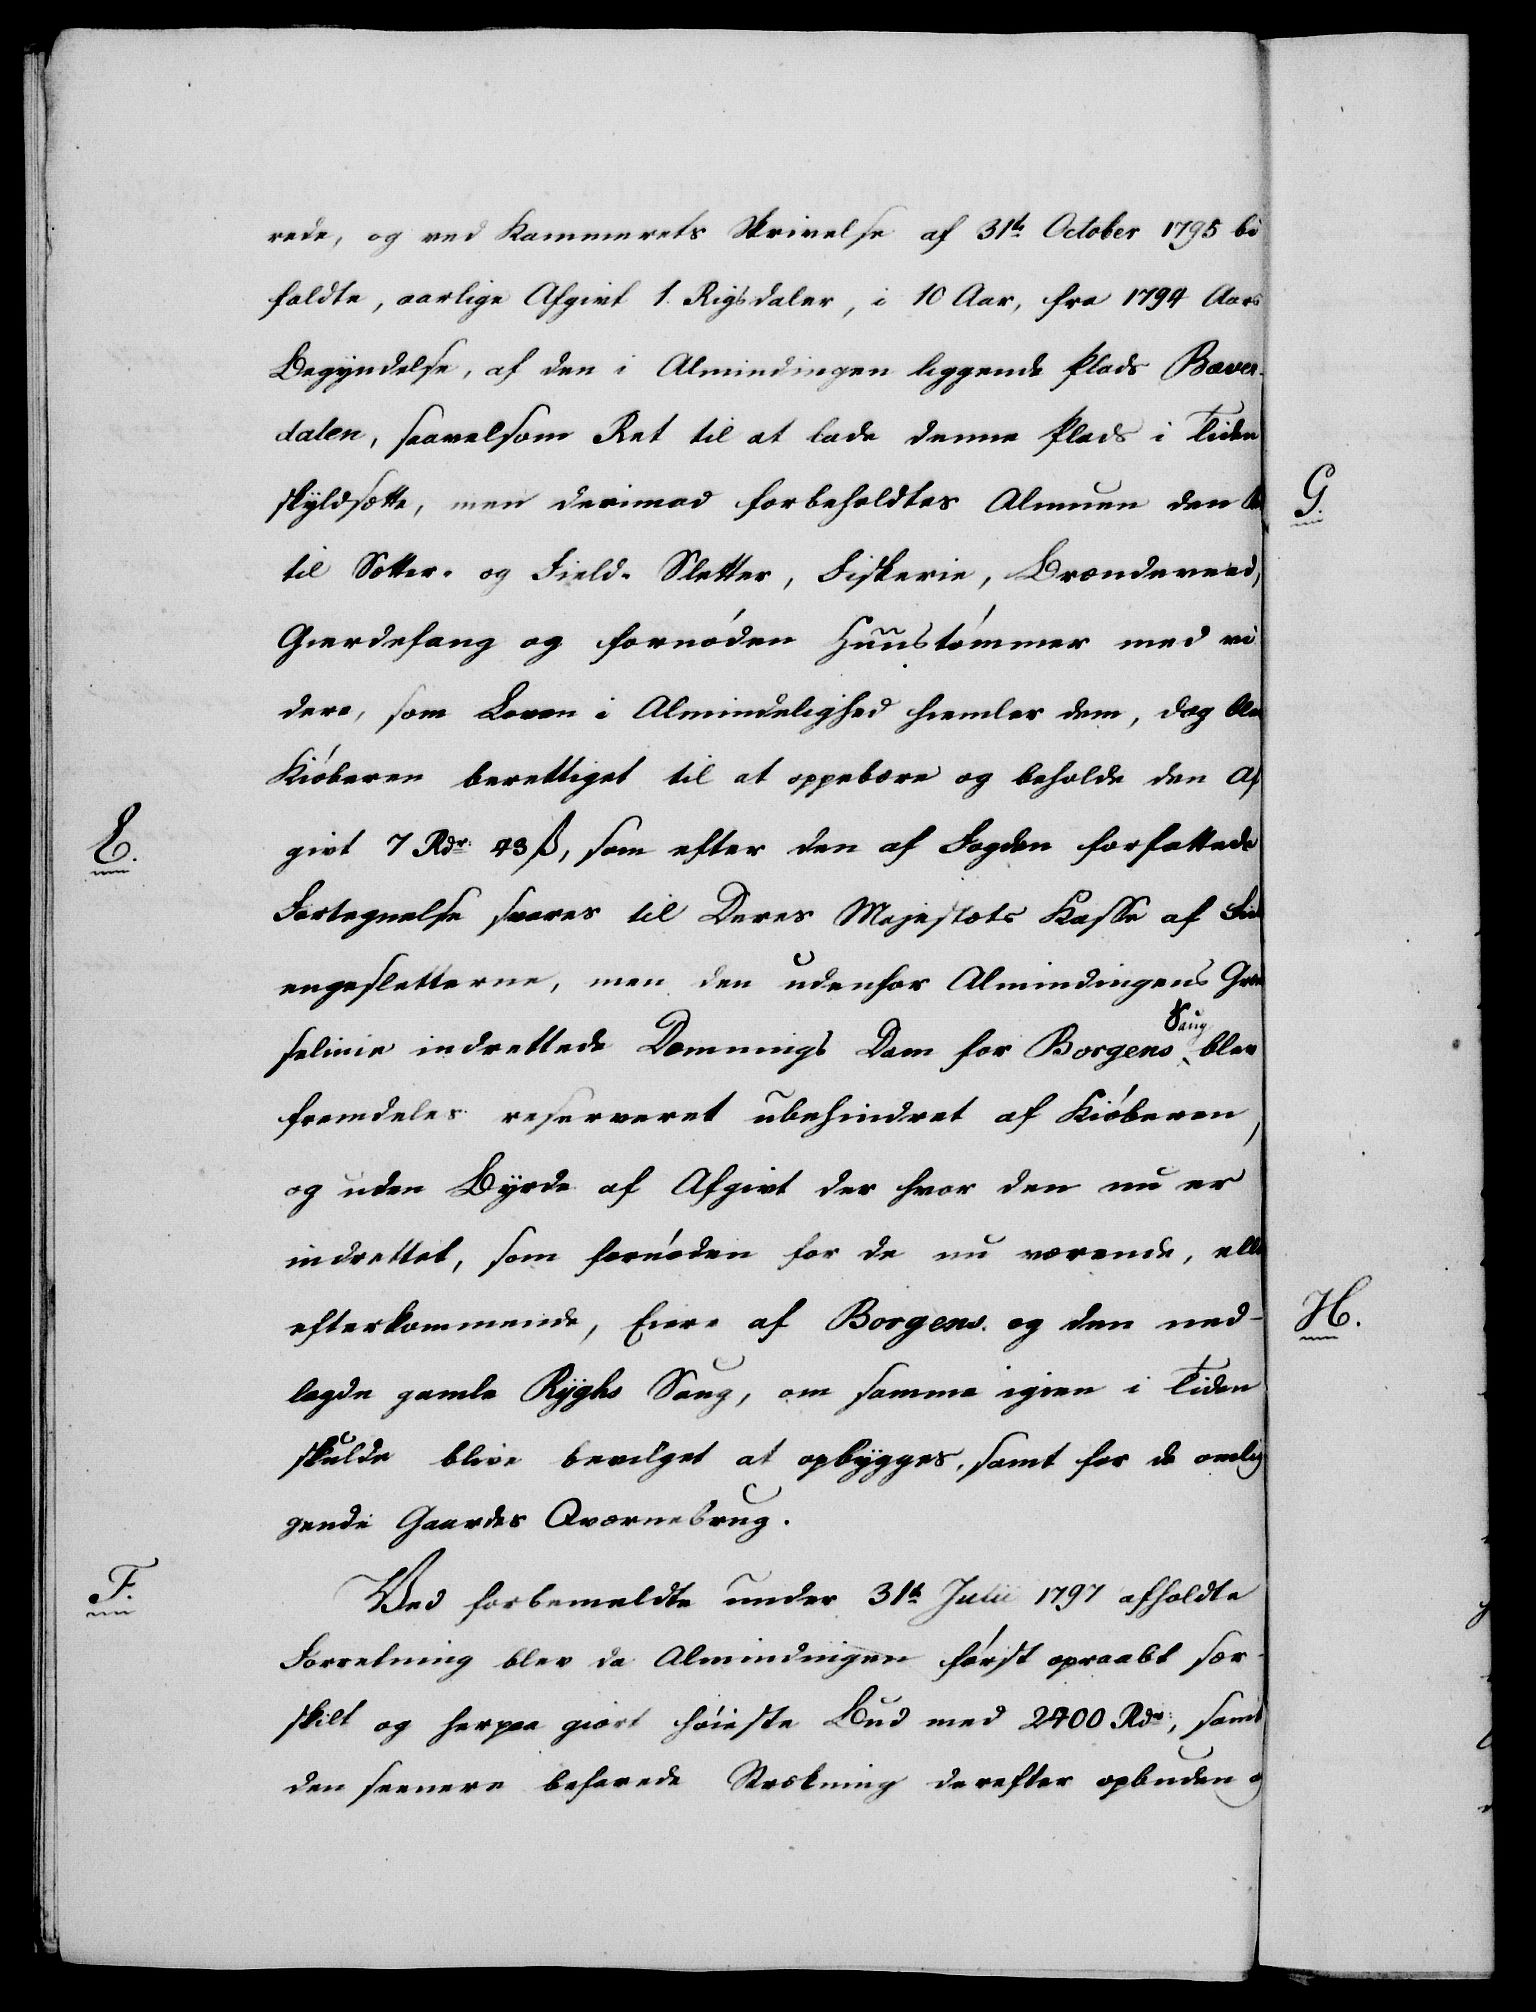 rede, og ved Kammerets Skrivelse af 31te October 1795 bi
faldte, aarlige Afgivt 1 Rigsdaler, i 10 Aar, fra 1794 Aars
Begyndelse, af den i Almindingen liggende Plads Bæver-
dalen, saavelsom Ret til at lade denne Plads i Tiden
skyldsætte, men derimod forbeholdtes Almuen den
G.
til Sætter- og Field-Sletter, Fiskerie, Brændeveed,
Gierdefang og fornøden Huustømmer med vi
dere, som Loven i Almindelighed hiemler dem, dog blev
Kiøberen berettiget til at oppebære og beholde den Af
E.
givt 7 Rdr. 43 ß, som efter den af Fogden forfattede
Fortegnelse svares til Deres Majestæts Kasse af
engesletterne, men den udenfor Almindingens Græn
selinie indrettede Dæmnings Dam for Borgens Saug blev
fremdeles reserveret ubehindret af Kiøberen,
og uden Byrde af Afgivt der hvor den nu er
indrettet, som fornøden for de nu værende, eller
efterkommende, Eiere af Borgens og den ned-
H.
lagde gamle Ryghs Saug, om samme igien i Tiden
skulde blive bevilget at opbygges, samt for de omlig
gende Gaardes Qværnebrug.
F.
Ved forbemeldte under 31te Julii 1797 afholdte
Forretning blev da Almindingen først opraabt sær-
skilt og herpaa giort høieste Bud med 2400 Rdr., samt
den seenere befarede Strækning derefter opbuden og